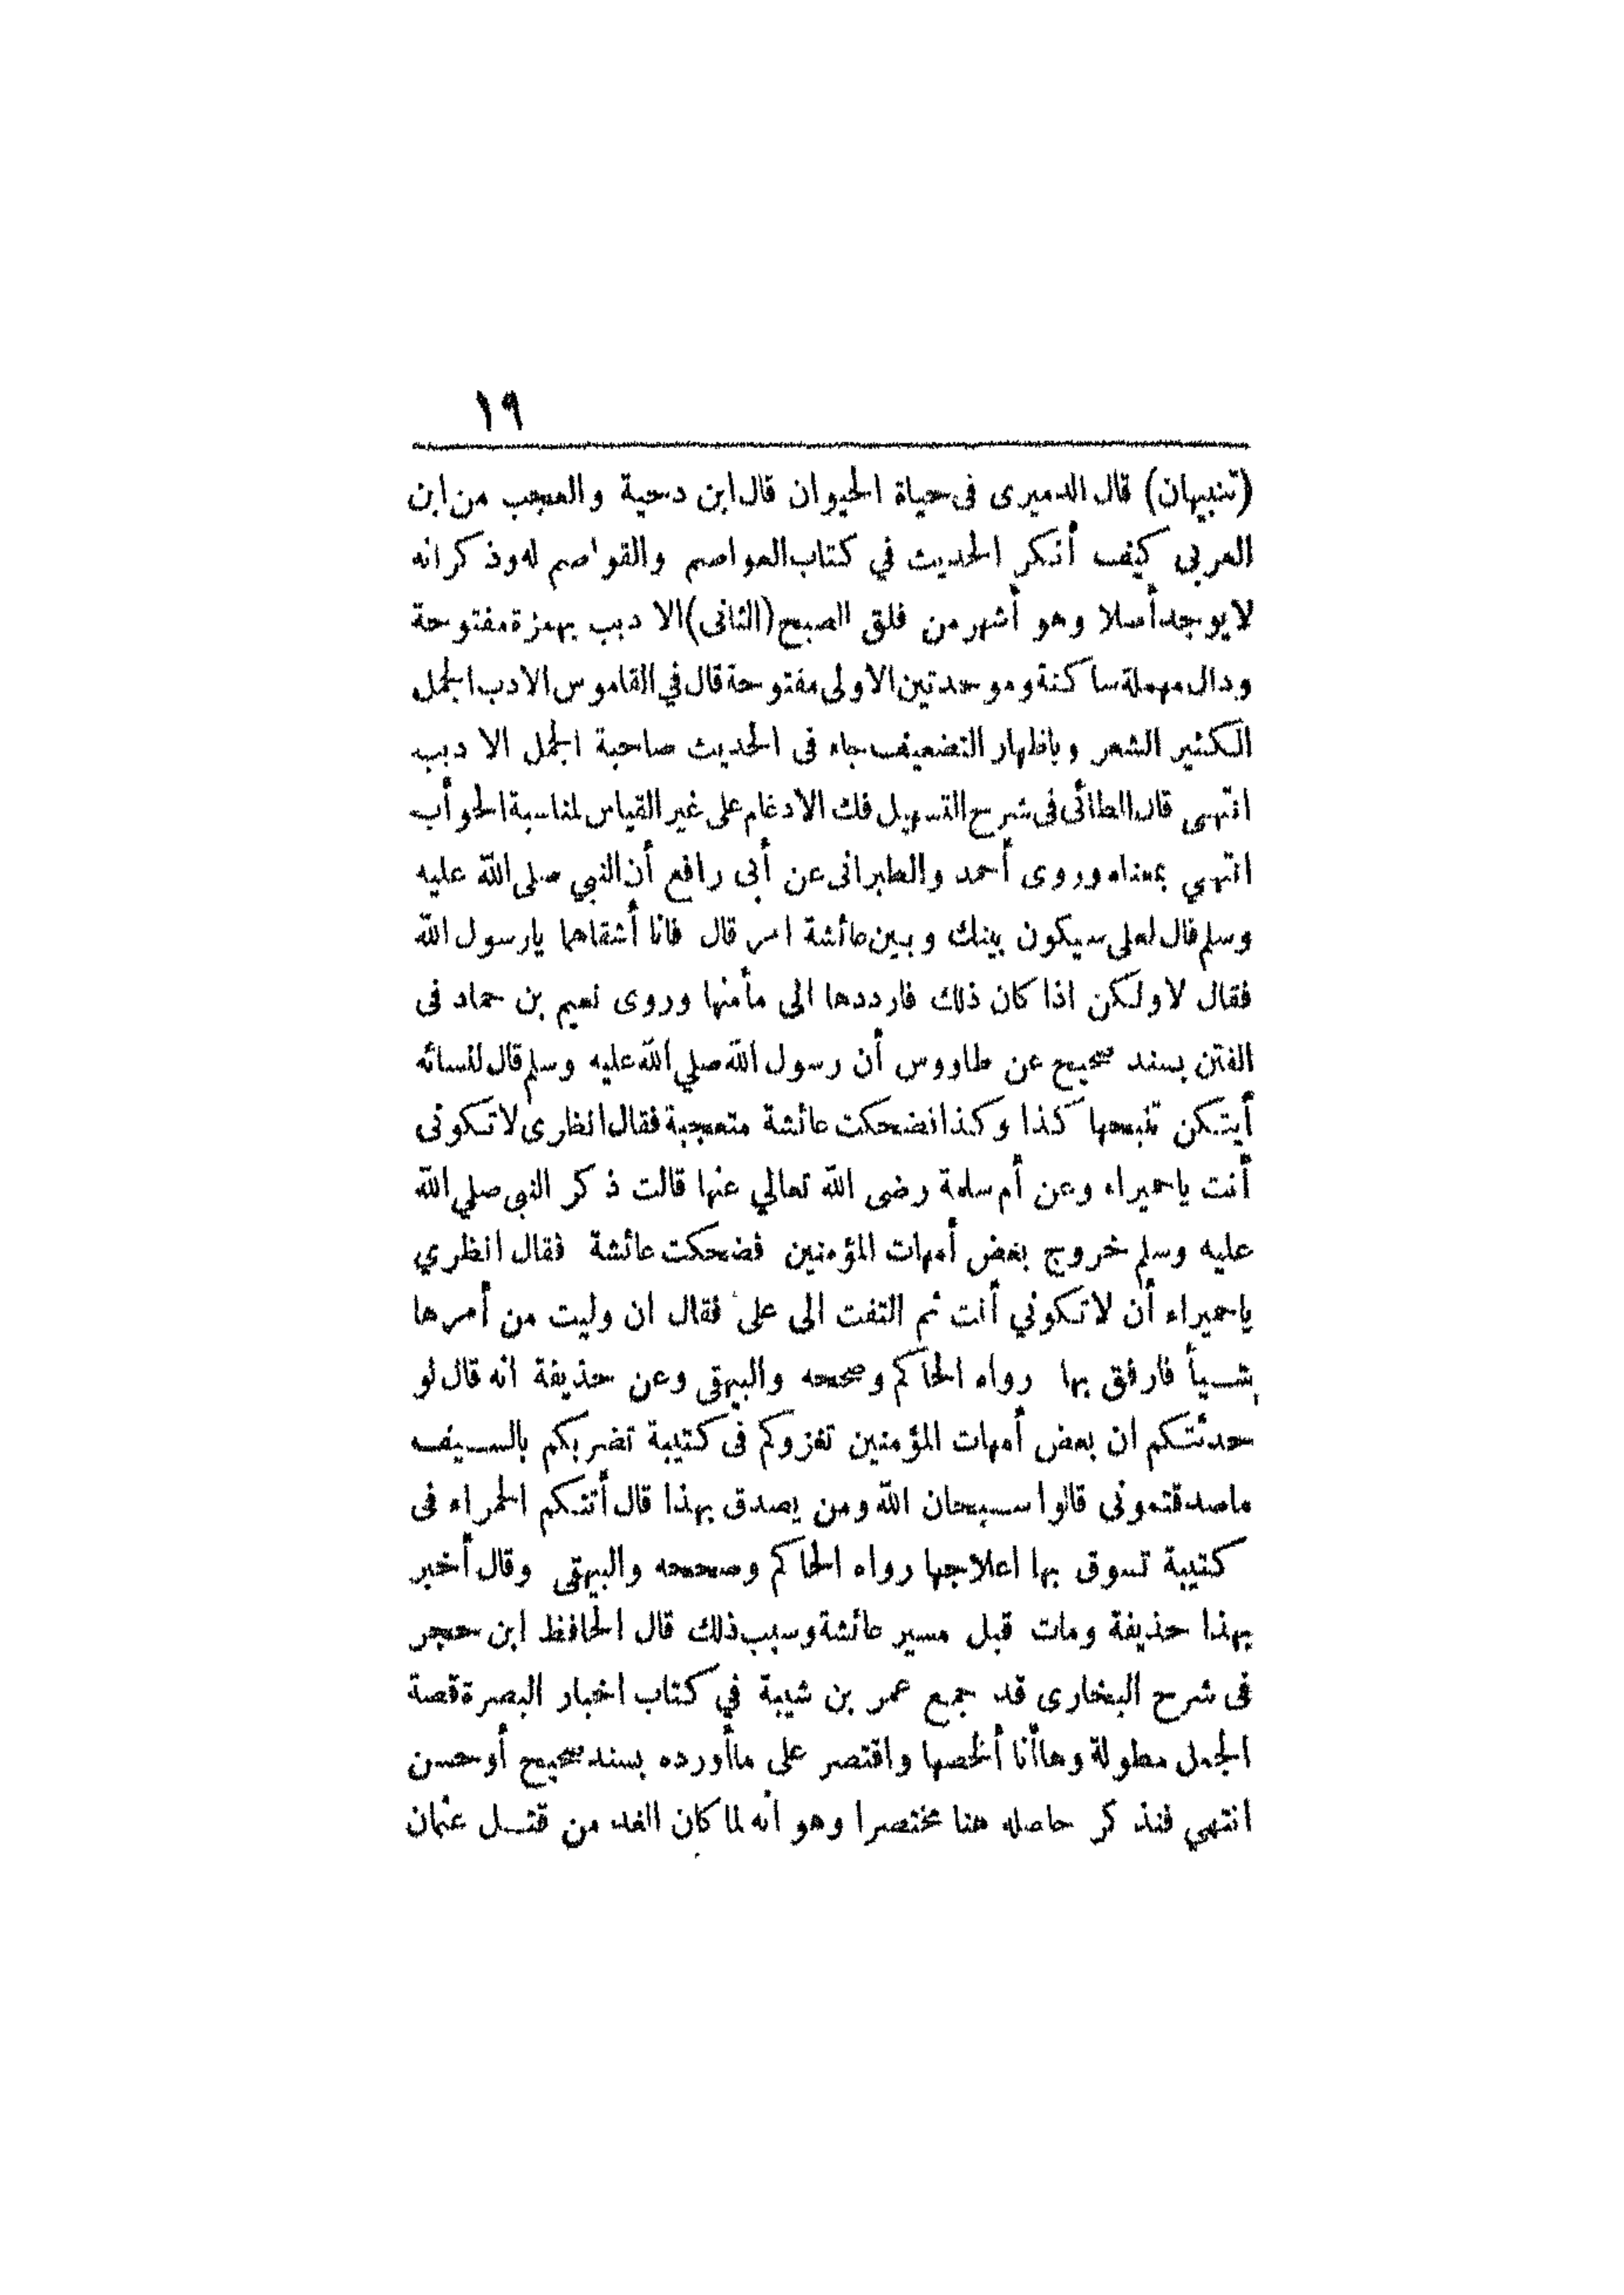 ١٩
(تنبيهان) قال الدميرى فى حياة الحيوان قال ابن دحية والعجب من ابن
العربى كيف أنكر الحديث في كتاب العواصم والقواصم له وذكر انه
لا يوجد أصلا وهو أشهر من فلق الصبح (الثانى) الادبب بهمزة مفتوحة
ودال مهملة ساكنة وموحدتين الاولى مفتوحة قال في القاموس الادب الجمل
الكثير الشعر وباظهار التضعيف جاء فى الحديث صاحبة الجمل الادبب
انتهى قال الطائى فى شرح التسهيل فك الادغام على غير القياس لمناسبة الحوأب
انتهي بمعناه وروى أحمد والطبرانى عن أبى رافع أن النبي صلى الله عليه
وسلم قال لعلى سيكون بينك وبين عائشة امر قال فانا أشقاهما يارسول الله
فقال لا ولكن اذا كان ذلك فارددها الى مأمنها وروى نعيم بن حماد فى
الفتن بسند صحيح عن طاووس أن رسول الله صلي الله عليه وسلم قال لنسائه
أيتكن تنبحها كذا وكذا فضحكت عائشة متعجبة فقال انظرى لا تكونى
أنت ياحميراء وعن أم سلمة رضى الله تعالي عنها قالت ذكر النبى صلي الله
عليه وسلم خروج بعض أمهات المؤمنين فضحكت عائشة فقال انظري
ياحميراء أن لا تكوني أنت ثم التفت الى على فقال ان وليت من أمرها
شيأ فارفق بها رواه الحاكم وصححه والبيهقى وعن حذيفة انه قال لو
حدثتكم ان بعض أمهات المؤمنين تغزوكم فى كتيبة تضربكم بالسيف
ماصدقتمونى قالوا سبحان الله ومن يصدق بهذا قال أتتكم الحمراء فى
كتيبة تسوق بها اعلاجها رواه الحاكم وصححه والبيهقى وقال أخبر
بهذا حذيفة ومات قبل مسير عائشة وسبب ذلك قال الحافظ ابن حجر
فى شرح البخارى قد جمع عمر بن شيبة في كتاب اخبار البصرة قصة
الجمل مطولة وهاأنا ألخصها واقتصر على ماأورده بسند صحيح أو حسن
انتهي فنذكر حاصله هنا مختصرا وهو انه لما كان الغد من قتل عثمان